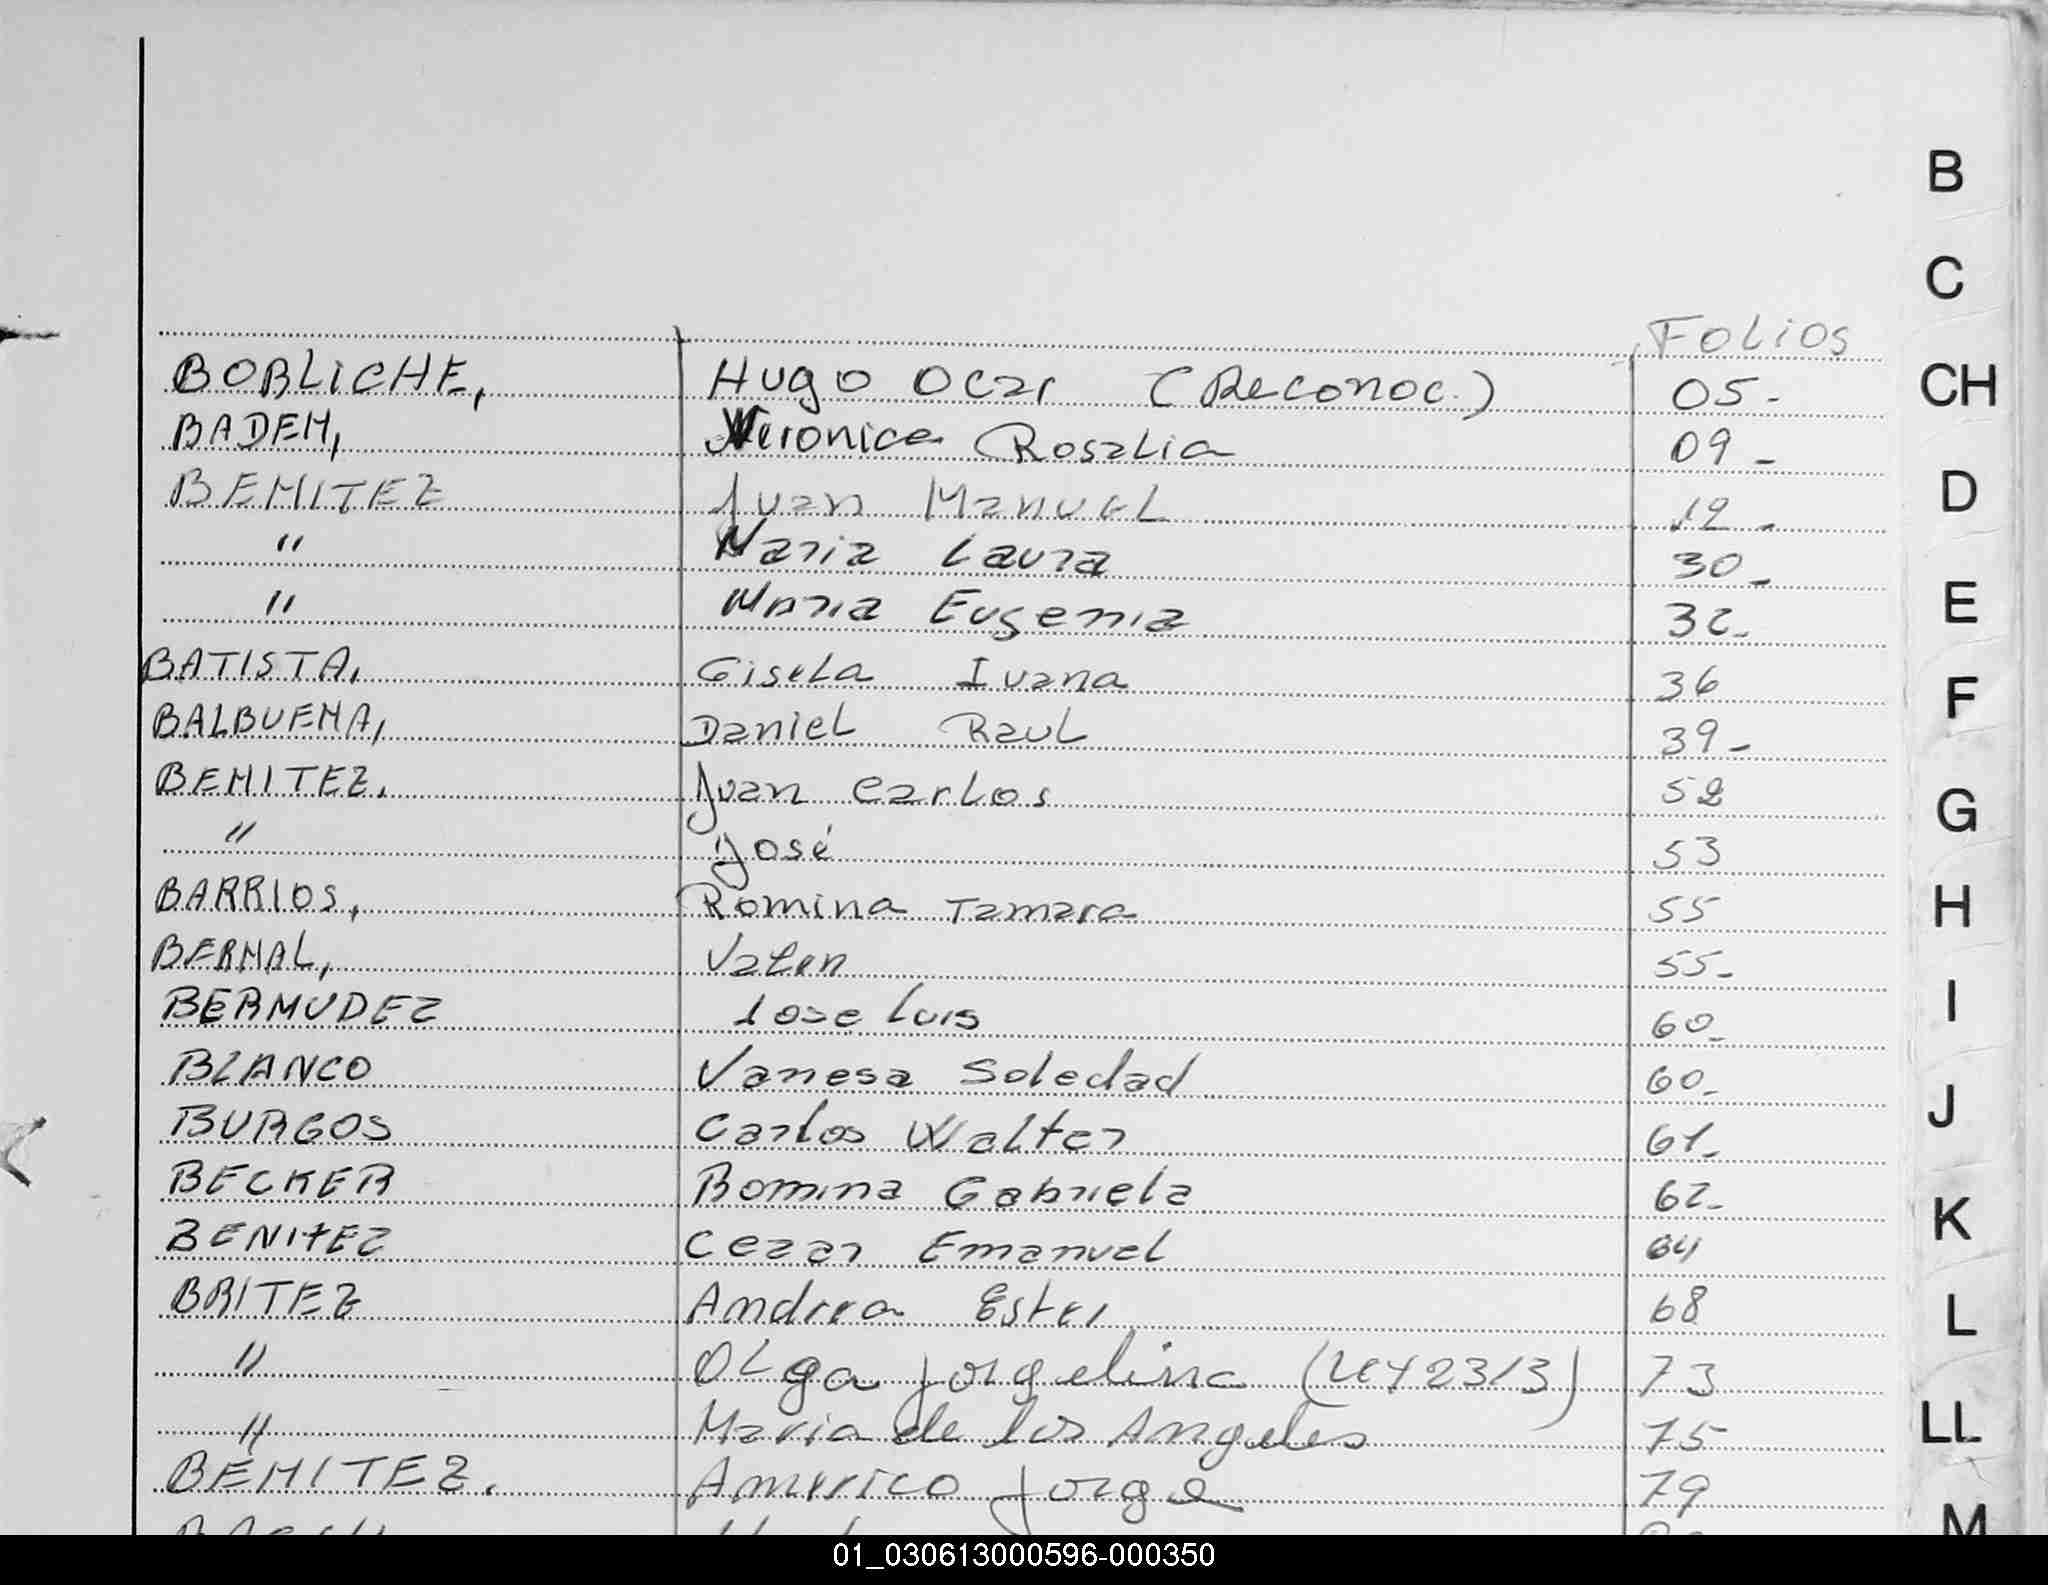 FOLIOS
BOBLICHE, Hugo Ocar (Reconoc.) 05-
BADEN, Veronica Rosalia 09-
BENITEZ Juan Manuel 12-
" Maria Laura 30-
" Maria Eugenia 32-
BATISTA, Gisela Ivana 36
BALBUENA, Daniel Raul 39-
BENITEZ, Juan Carlos 52
" José 53
BARRIOS, Romina Tamara 55
BERNAL, 55-
BERMUDEZ Jose Luis 60-
BLANCO Vanesa Soledad 60-
BURGOS Carlos Walter 61-
BECKER Romina Gabriela 62-
BENITEZ Cezar Emanuel 64
BRITEZ Andrea Ester 68
" Olga Jorgelina (Ley 23/3) 73
" Maria de los Angeles 75
BENITEZ. Americo Jorge 79
B
C
CH
D
E
F
G
H
I
J
K
L
LL
M
01_030613000596-000350